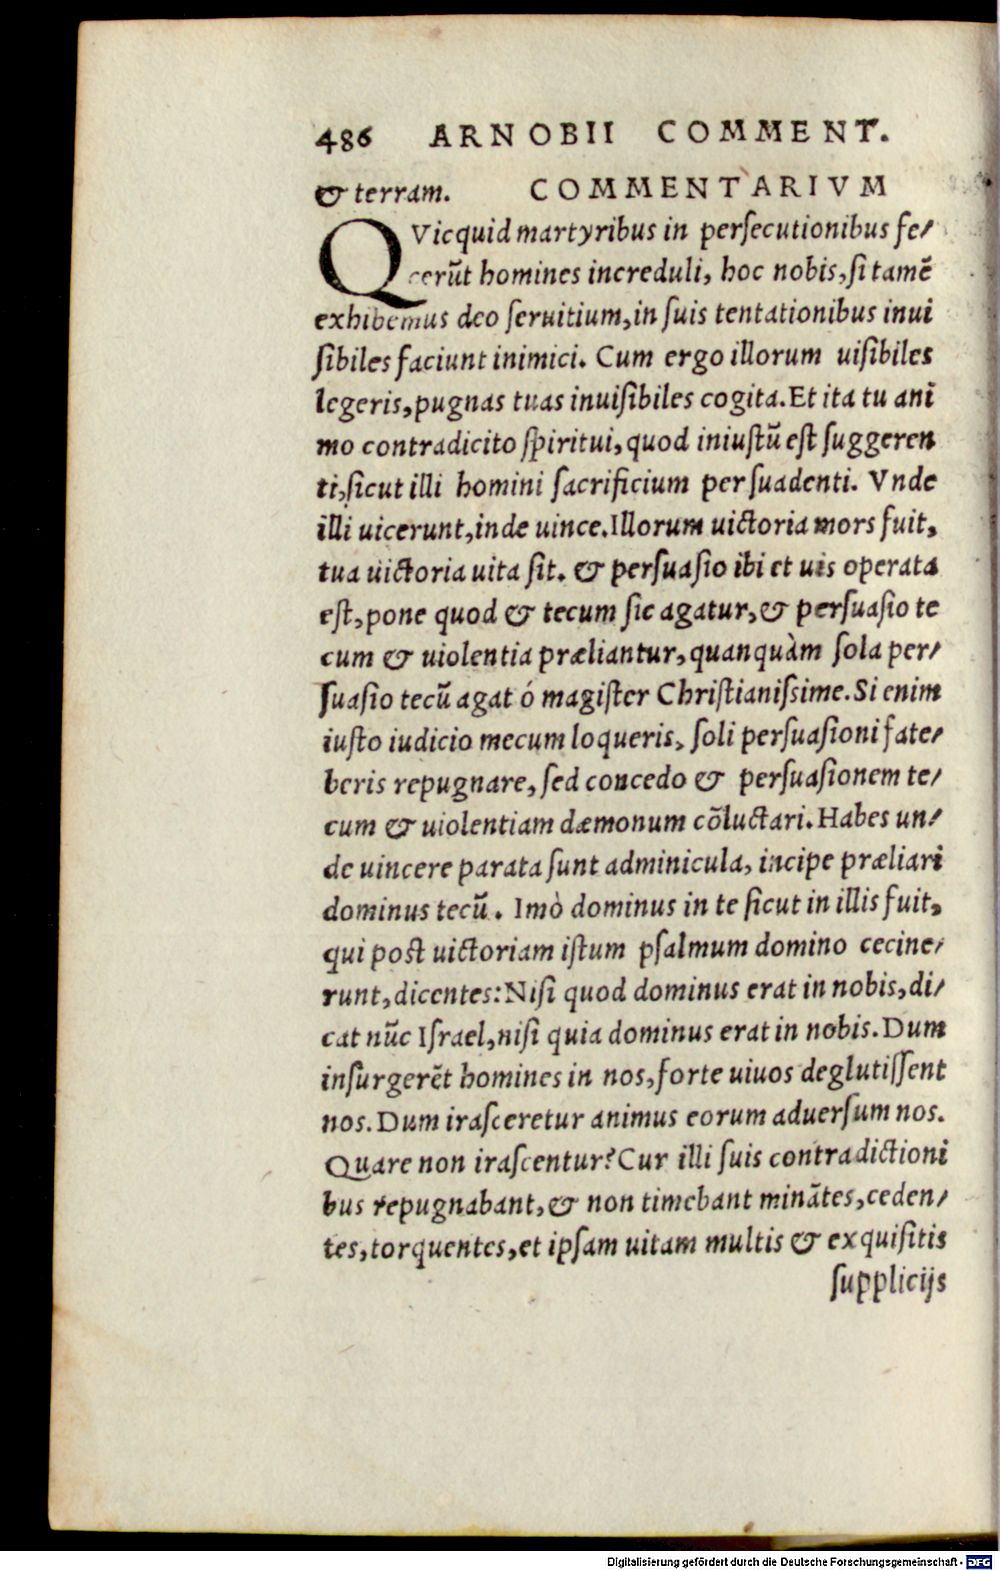 486 ARNOBII COMMENT.
& terram. COMMENTARIVM
QVicquid martyribus in perſecutionibus fe/
cerũt homines increduli, hoc nobis, ſi tamẽ
exhibemus deo ſeruitium, in ſuis tentationibus inui
ſibiles faciunt inimici. Cum ergo illorum uiſibiles
legeris, pugnas tuas inuiſibiles cogita. Et ita tu ani
mo contradicito ſpiritui, quod iniuſtũ eſt ſuggeren
ti, ſicut illi homini ſacrificium perſuadenti. Vnde
illi uicerunt, inde uince. Illorum uictoria mors fuit,
tua uictoria uita ſit. & perſuaſio ibi et uis operata
eſt, pone quod & tecum ſic agatur, & perſuaſio te
cum & uiolentia præliantur, quanquàm ſola per/
ſuaſio tecũ agat ó magiſter Chriſtianiſsime. Si enim
iuſto iudicio mecum loqueris, ſoli perſuaſioni fate/
beris repugnare, ſed concedo & perſuaſionem te/
cum & uiolentiam dæmonum cõluctari. Habes un/
de uincere parata ſunt adminicula, incipe præliari
dominus tecũ. Imò dominus in te ſicut in illis fuit,
qui poſt uictoriam iſtum pſalmum domino cecine/
runt, dicentes: Niſi quod dominus erat in nobis, di/
cat nũc Iſrael, niſi quia dominus erat in nobis. Dum
inſurgerẽt homines in nos, forte uiuos deglutiſſent
nos. Dum iraſceretur animus eorum aduerſum nos.
Quare non iraſcentur? Cur illi ſuis contradictioni
bus repugnabant, & non timebant minãtes, ceden/
tes, torquentes, et ipſam uitam multis & exquiſitis
ſupplicijs
Digitalisierung gefördert durch die Deutsche Forschungsgemeinschaft - DFG